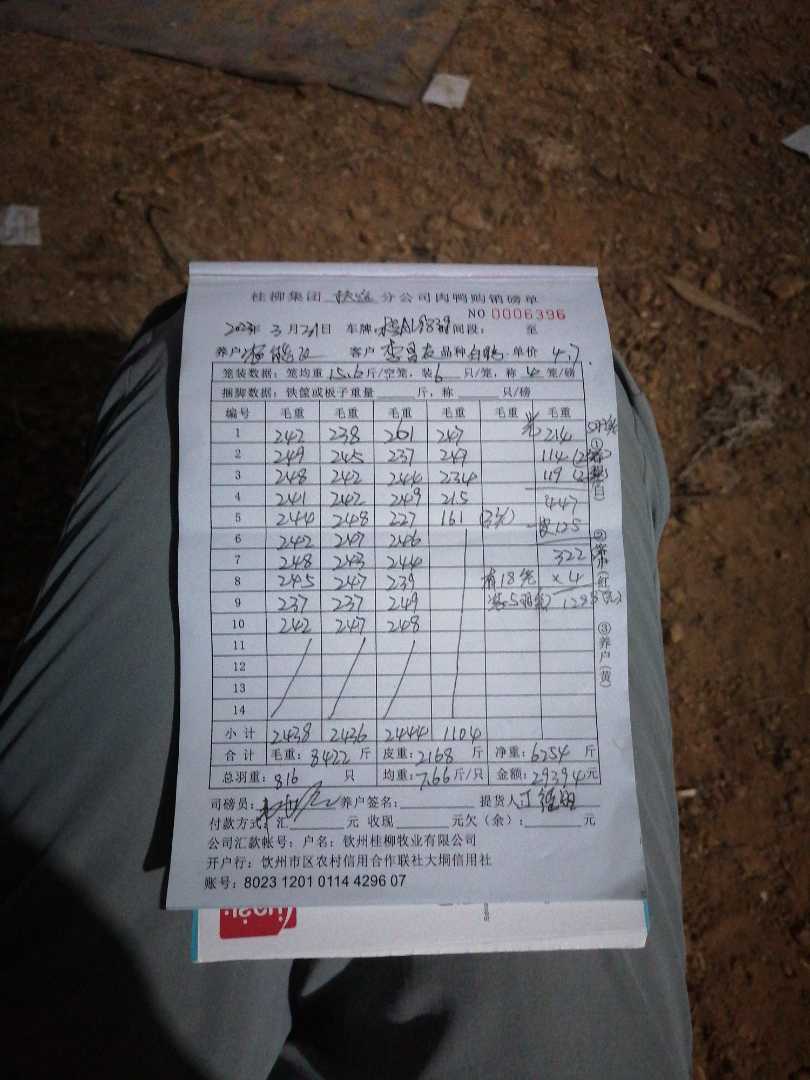 桂柳集团 扶 分公司肉鸭购销磅单
NO 0006396
2023年 3 月 21日 车牌: 桂AL9839 时间段: 至
养户: 杨 客户 李 品种 白鸭 单价 4.7
笼装数据: 笼均重 15.6 斤/空笼, 装 6 只/笼, 称 4 笼/磅
捆脚数据: 铁筐或板子重量 斤, 称 只/磅
编号 毛重 毛重 毛重 毛重 毛重 毛重
1 242 238 261 247 214
2 249 245 237 249 114
3 248 242 244 234 119
4 241 242 249 215 447
5 244 248 227 161 (3笼) 皮125
6 242 247 246
7 248 243 244 322
8 245 247 239 有18笼 ×4
9 237 237 249 装5只 129
10 242 247 248
11
12
13
14
小计 2438 2436 2444 1104
合计 毛重: 8422 斤 皮重: 2168 斤 净重: 6254 斤
总羽重: 816 只 均重: 7.66 斤/只 金额: 29394 元
司磅员: 养户签名: 提货人
付款方式: 汇 元 收现 元欠(余): 元
公司汇款帐号: 户名: 钦州桂柳牧业有限公司
开户行: 钦州市区农村信用合作联社大垌信用社
账号: 8023 1201 0114 4296 07
①
白
②
(红)
③养户(黄)